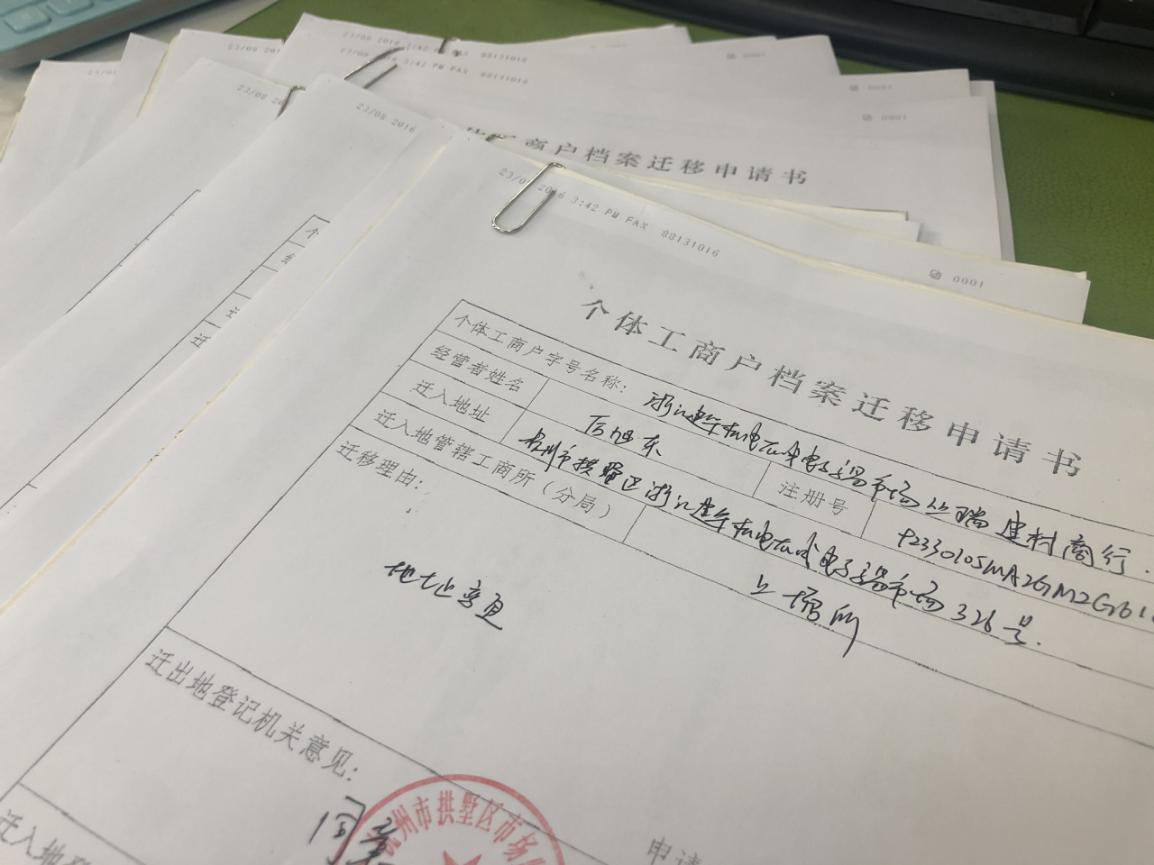 23/08 2016
23/08 2016 3:42 PM FAX 88131016
0001
个体工商户档案迁移申请书
个体工商户字号名称：浙江建华机电五金电子市场 瑞建材商行.
经营者姓名
东
注册号
92330105MA2GM2G61
迁入地址
杭州市拱墅区浙江建华机电五金电子市场326号.
迁入地管辖工商所（分局）
上塘所
迁移理由：
地址变更
迁出地登记机关意见：
同意
杭州市拱墅区市场
申请
迁入地
商户档案迁移申请书
3:42 PM FAX 88131016
0001
0001